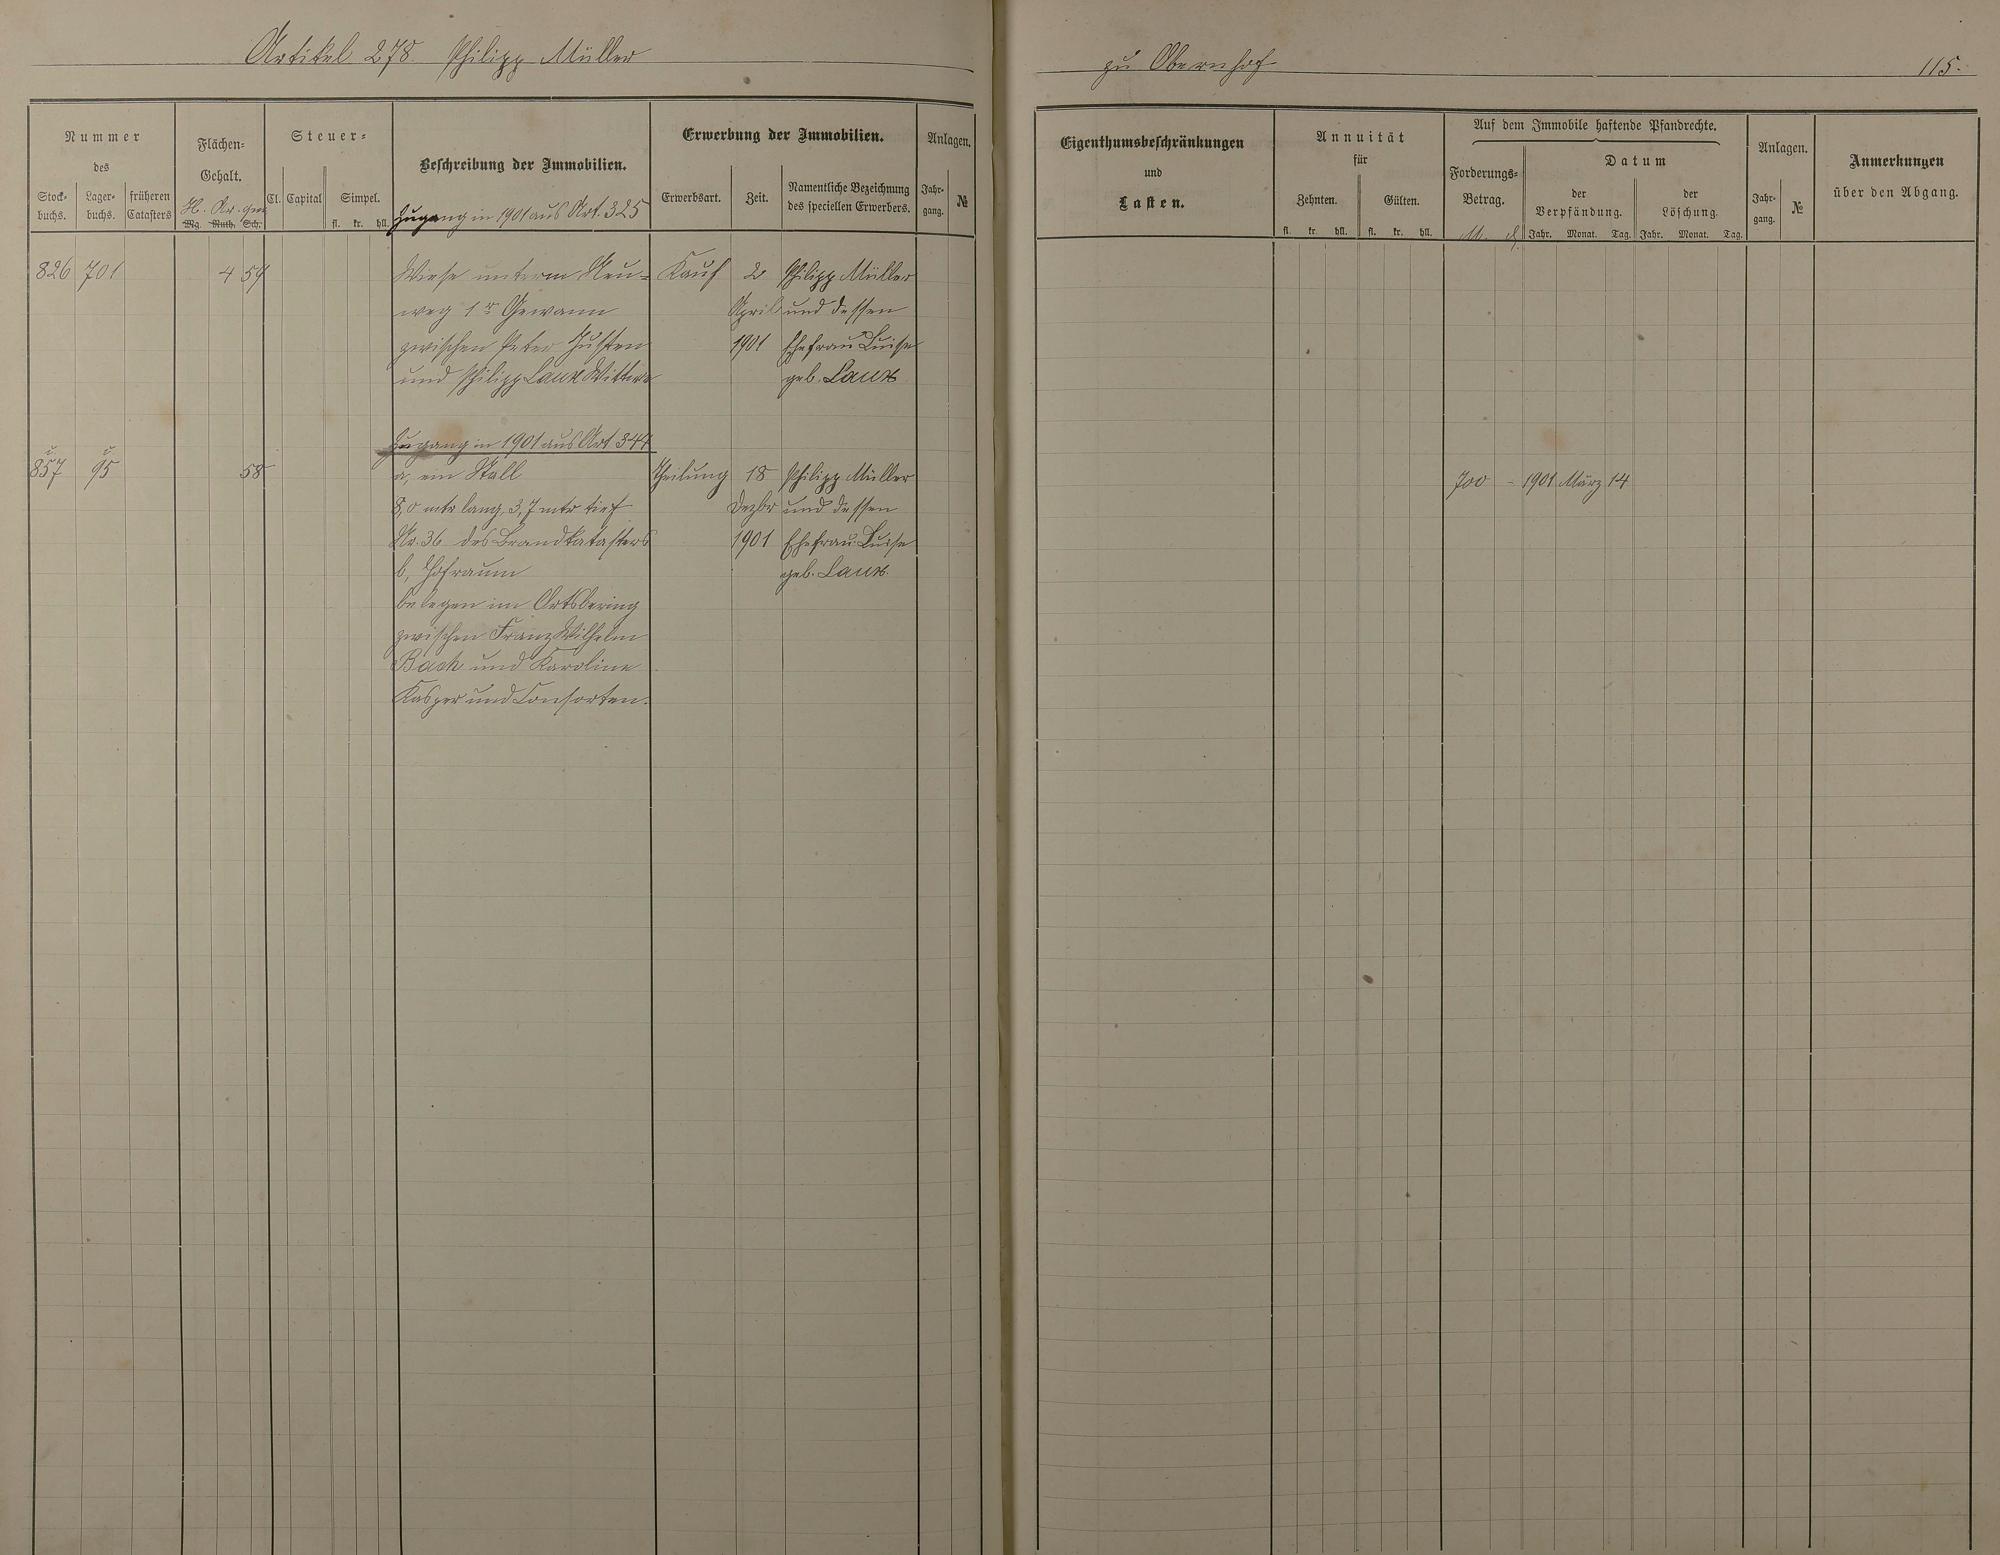 Artikel 278. Philipp Müller
zu Obernhof
115.
Nummer
des
Stock-
buchs.
Lager-
buchs.
früheren
Catasters
Flächen-
Gehalt.
H. Ar. qm
Mg. Ruth. Sch.
Steuer-
Cl. Capital
Simpel.
fl. kr. hll.
Beschreibung der Immobilien.
Zugang in 1901 aus Art. 325
Erwerbung der Immobilien.
Erwerbsart.
Zeit.
Namentliche Bezeichnung
des speciellen Erwerbers.
Anlagen.
Jahr-
gang.
№
Eigenthumsbeschränkungen
und
Lasten.
Annuität
für
Zehnten.
Gülten.
fl. kr. hll. fl. kr. hll.
Auf dem Immobile haftende Pfandrechte.
Forderungs-
Betrag.
Datum
der
Verpfändung.
der
Löschung.
Jahr. Monat. Tag. Jahr. Monat. Tag.
Anlagen.
Jahr-
gang.
№
Anmerkungen
über den Abgang.
826 701 4 59 Wiese unterm Neu- Kauf 2 Philipp Müller
weg 1r Gewann April und dessen
zwischen Peter Husten 1901 Ehefrau Luise
und Philipp Laux Wittwe geb. Laux
Zugang in 1901 aus Art 344
857 95 58 a, ein Stall Theilung 18 Philipp Müller 700 - 1901 März 14
8,0 mtr lang, 3,7 mtr tief Dezbr und dessen
Nr. 36 des Brandkatasters 1901 Ehefrau Luise
b, Hofraum geb. Laux.
belegen im Ortsbering
zwischen Franz Wilhelm
Bach und Karoline
Kasper und Consorten.